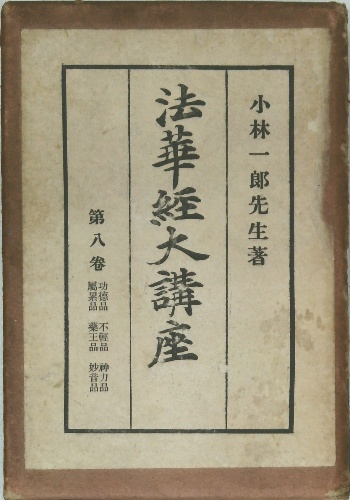 小林一郎先生著
法華經大講座
第八巻
功德品 不輕品 神力品
屬累品 藥王品 妙音品